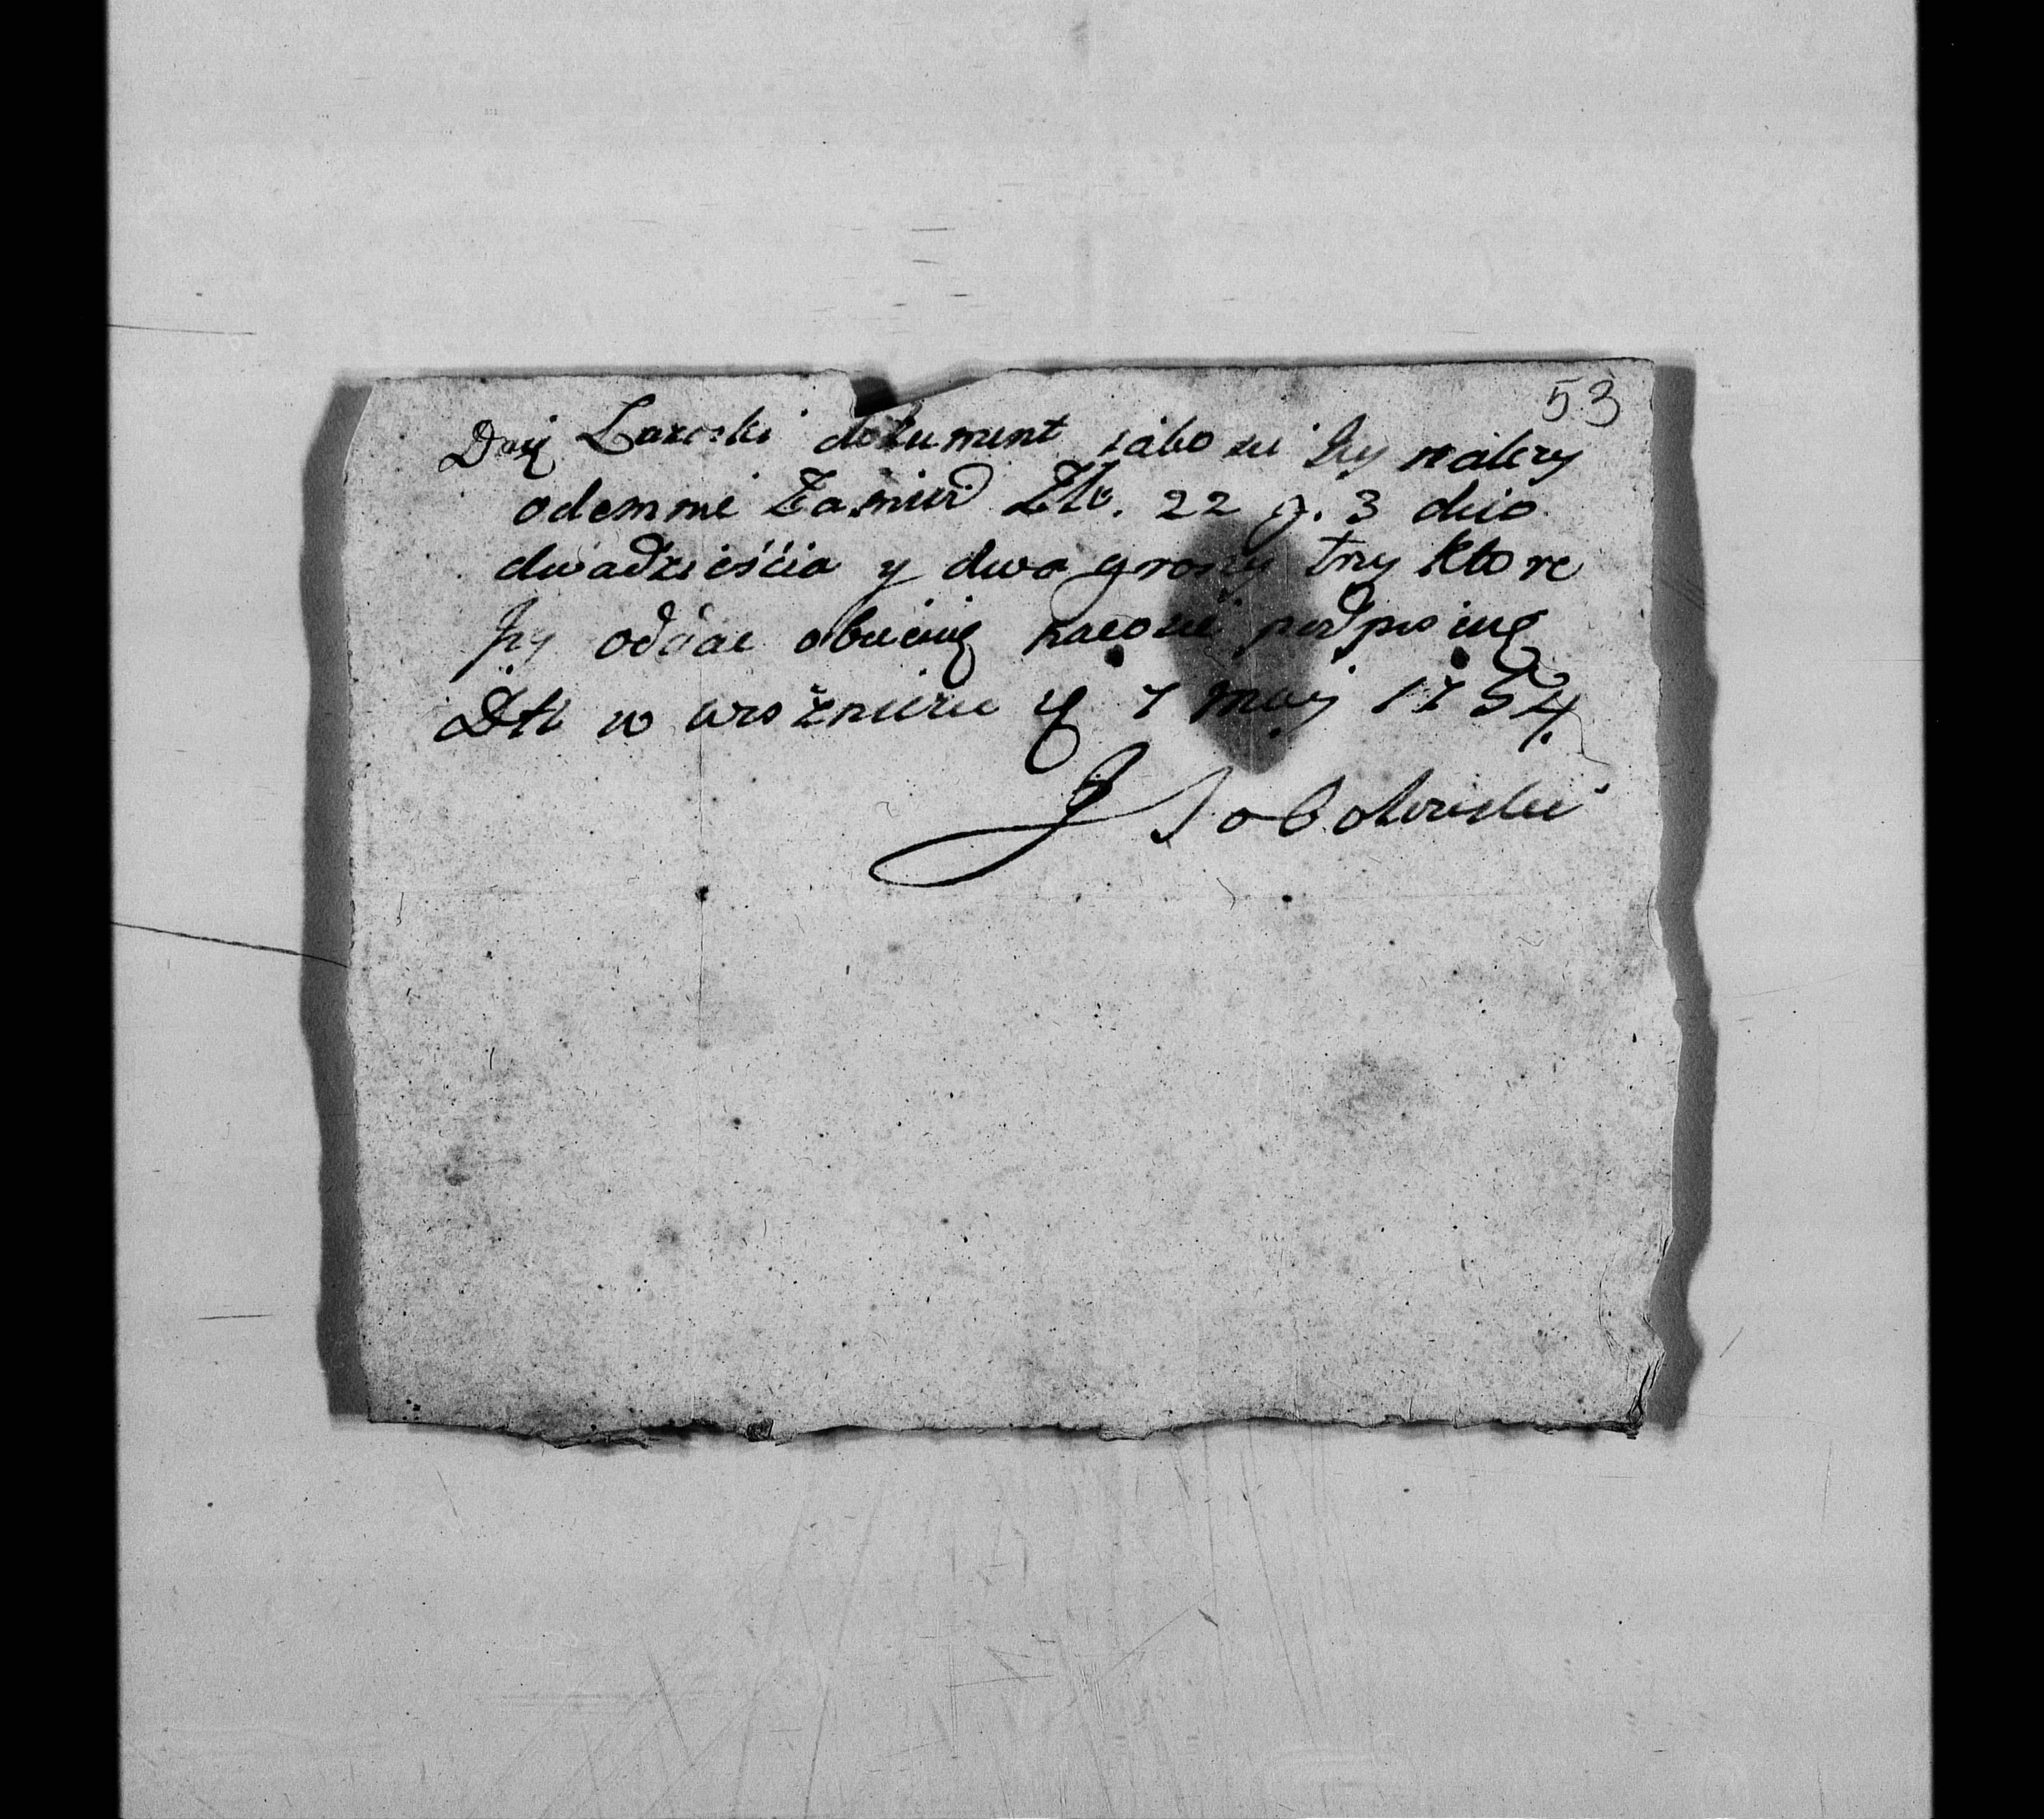 53
Daię Laxoski dokument iako sie Jey nalezy
odemnie Zamiod Zło. 22 g. 3 dwo
dwadzieśćia y dwa groszy trzy ktore
Jey oddac obiecuię naco sie podpisuię
Dtt w woźnicru y 7 maj 1754.
J Sobolewski